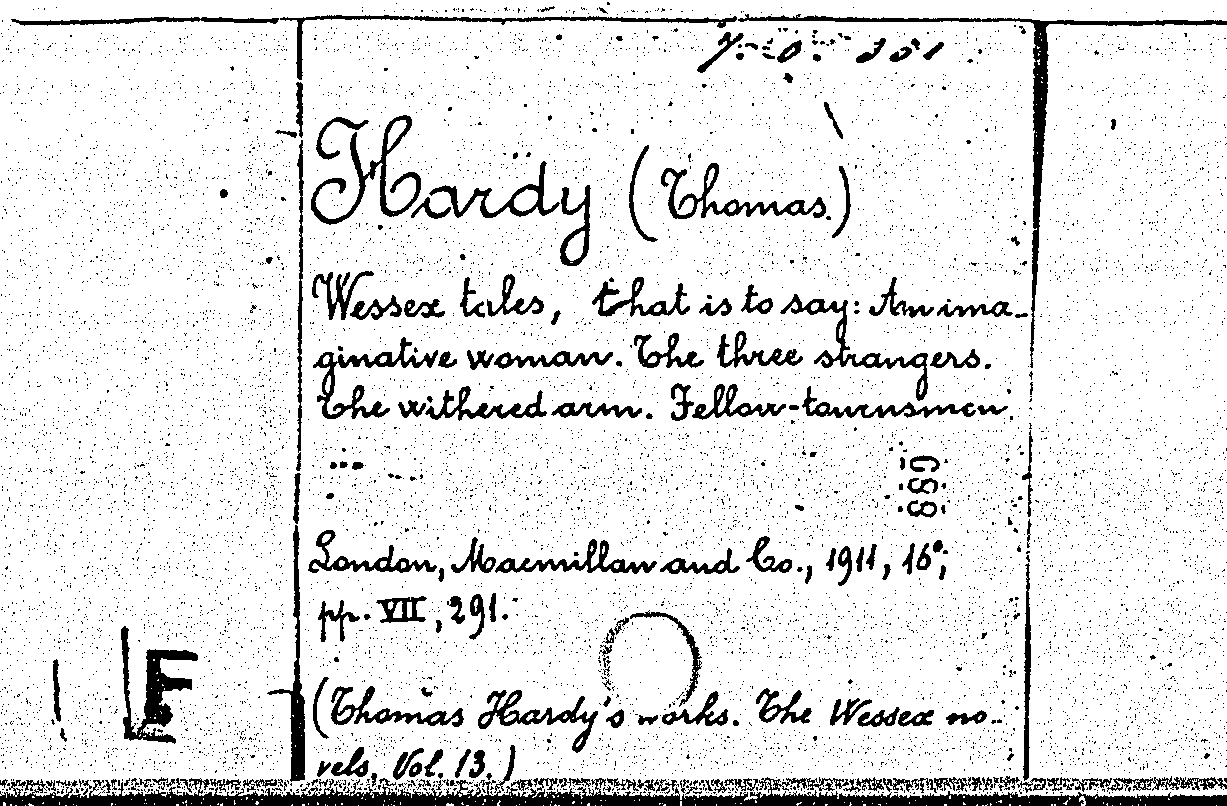 Hardy (Thomas)
Wessex tales, that is to say: An ima-
ginative woman. The three strangers.
The withered arm. Fellow-townsmen.
...
889
London, Macmillan and Co., 1911, 16°;
pp. VII, 291.
(Thomas Hardy's works. The Wessex no-
vels, Vol. 13.)